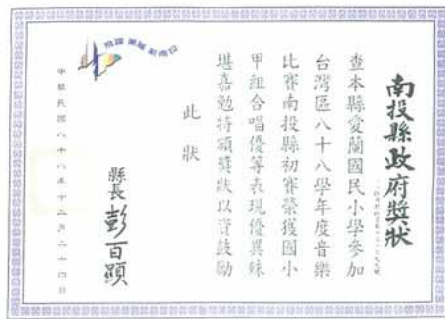 南投縣政府獎狀
查本縣愛蘭國民小學參加
台灣區八十八學年度音樂
比賽南投縣初賽榮獲國小
甲組合唱優等表現優異殊
堪嘉勉特頒獎狀以資鼓勵
此狀
縣長 彭百顯
中華民國八十八年十二月二十四日
飛躍 美麗 新南投